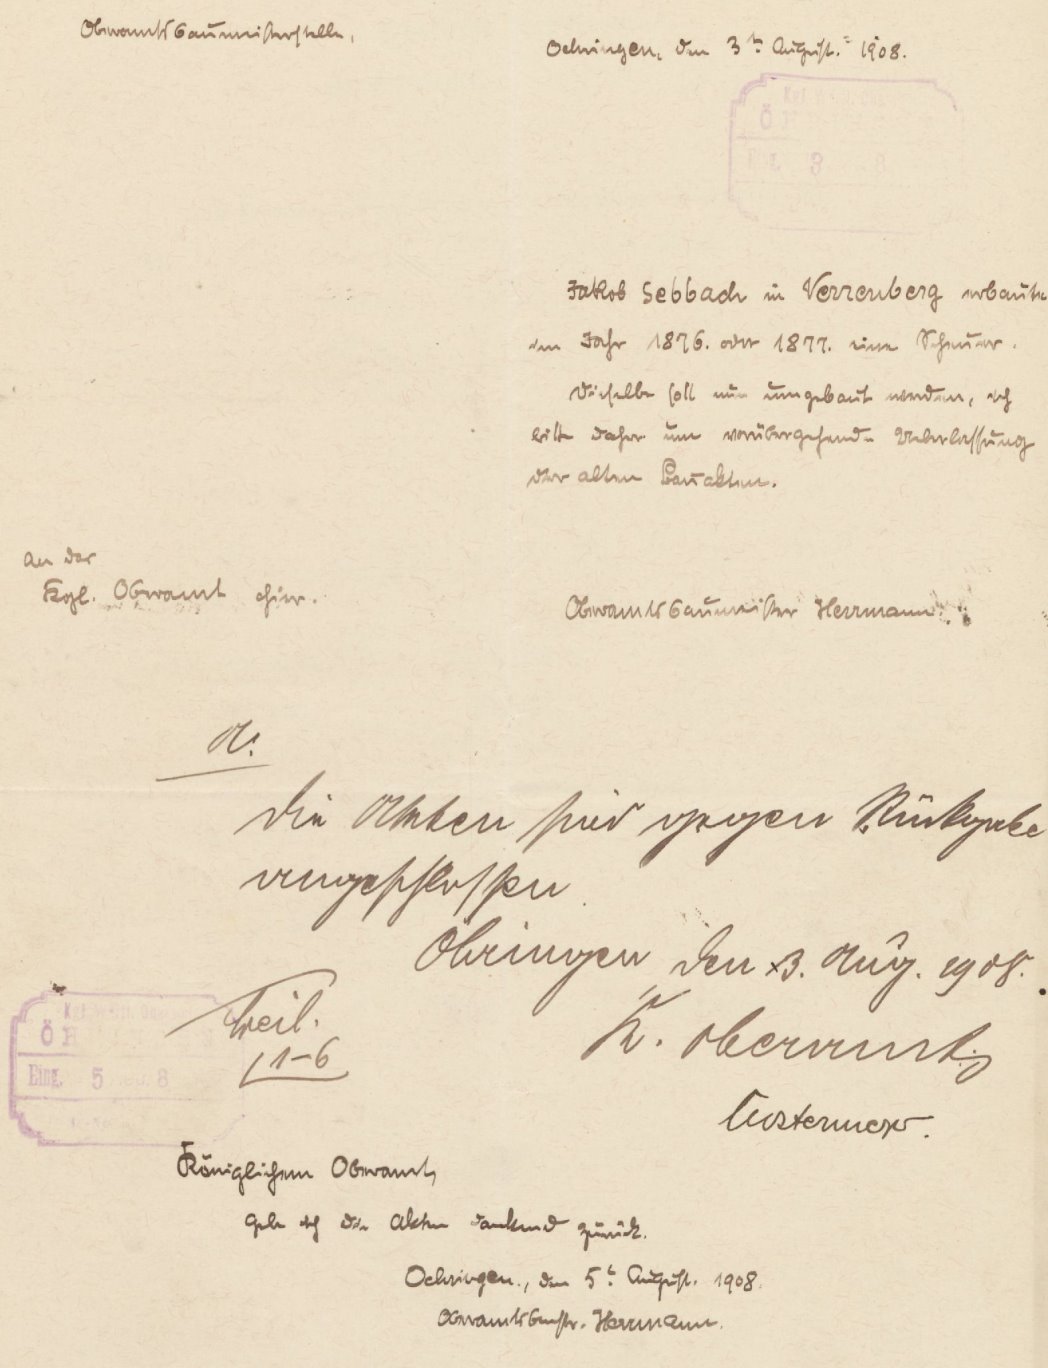 Oberamtsbaumeisterstelle.
Oehringen, den 3t. August. 1908.
Kgl.
Ö
Eing. 3 8
Jakob Sebbach in Verrenberg erbaute
im Jahr 1876. oder 1877. eine Scheuer.
Dieselbe soll nun umgebaut werden, ich
bitte daher um vorübergehende Ueberlassung
der alten Bauakten.
An das
Kgl. Oberamt hier.
Oberamtsbaumeister Herrmann.
Die Akten sind gegen Rückgabe
angeschlossen
Öhringen den 3. Aug. 1908.
K. Oberamt.
Beil.
1-6
Kgl.
ÖH
Eing. 5 8
Königlichem Oberamt,
gebe ich die Akten dankend zurück.
Oehringen, den 5t. August. 1908.
Oberamtsbmstr. Herrmann.